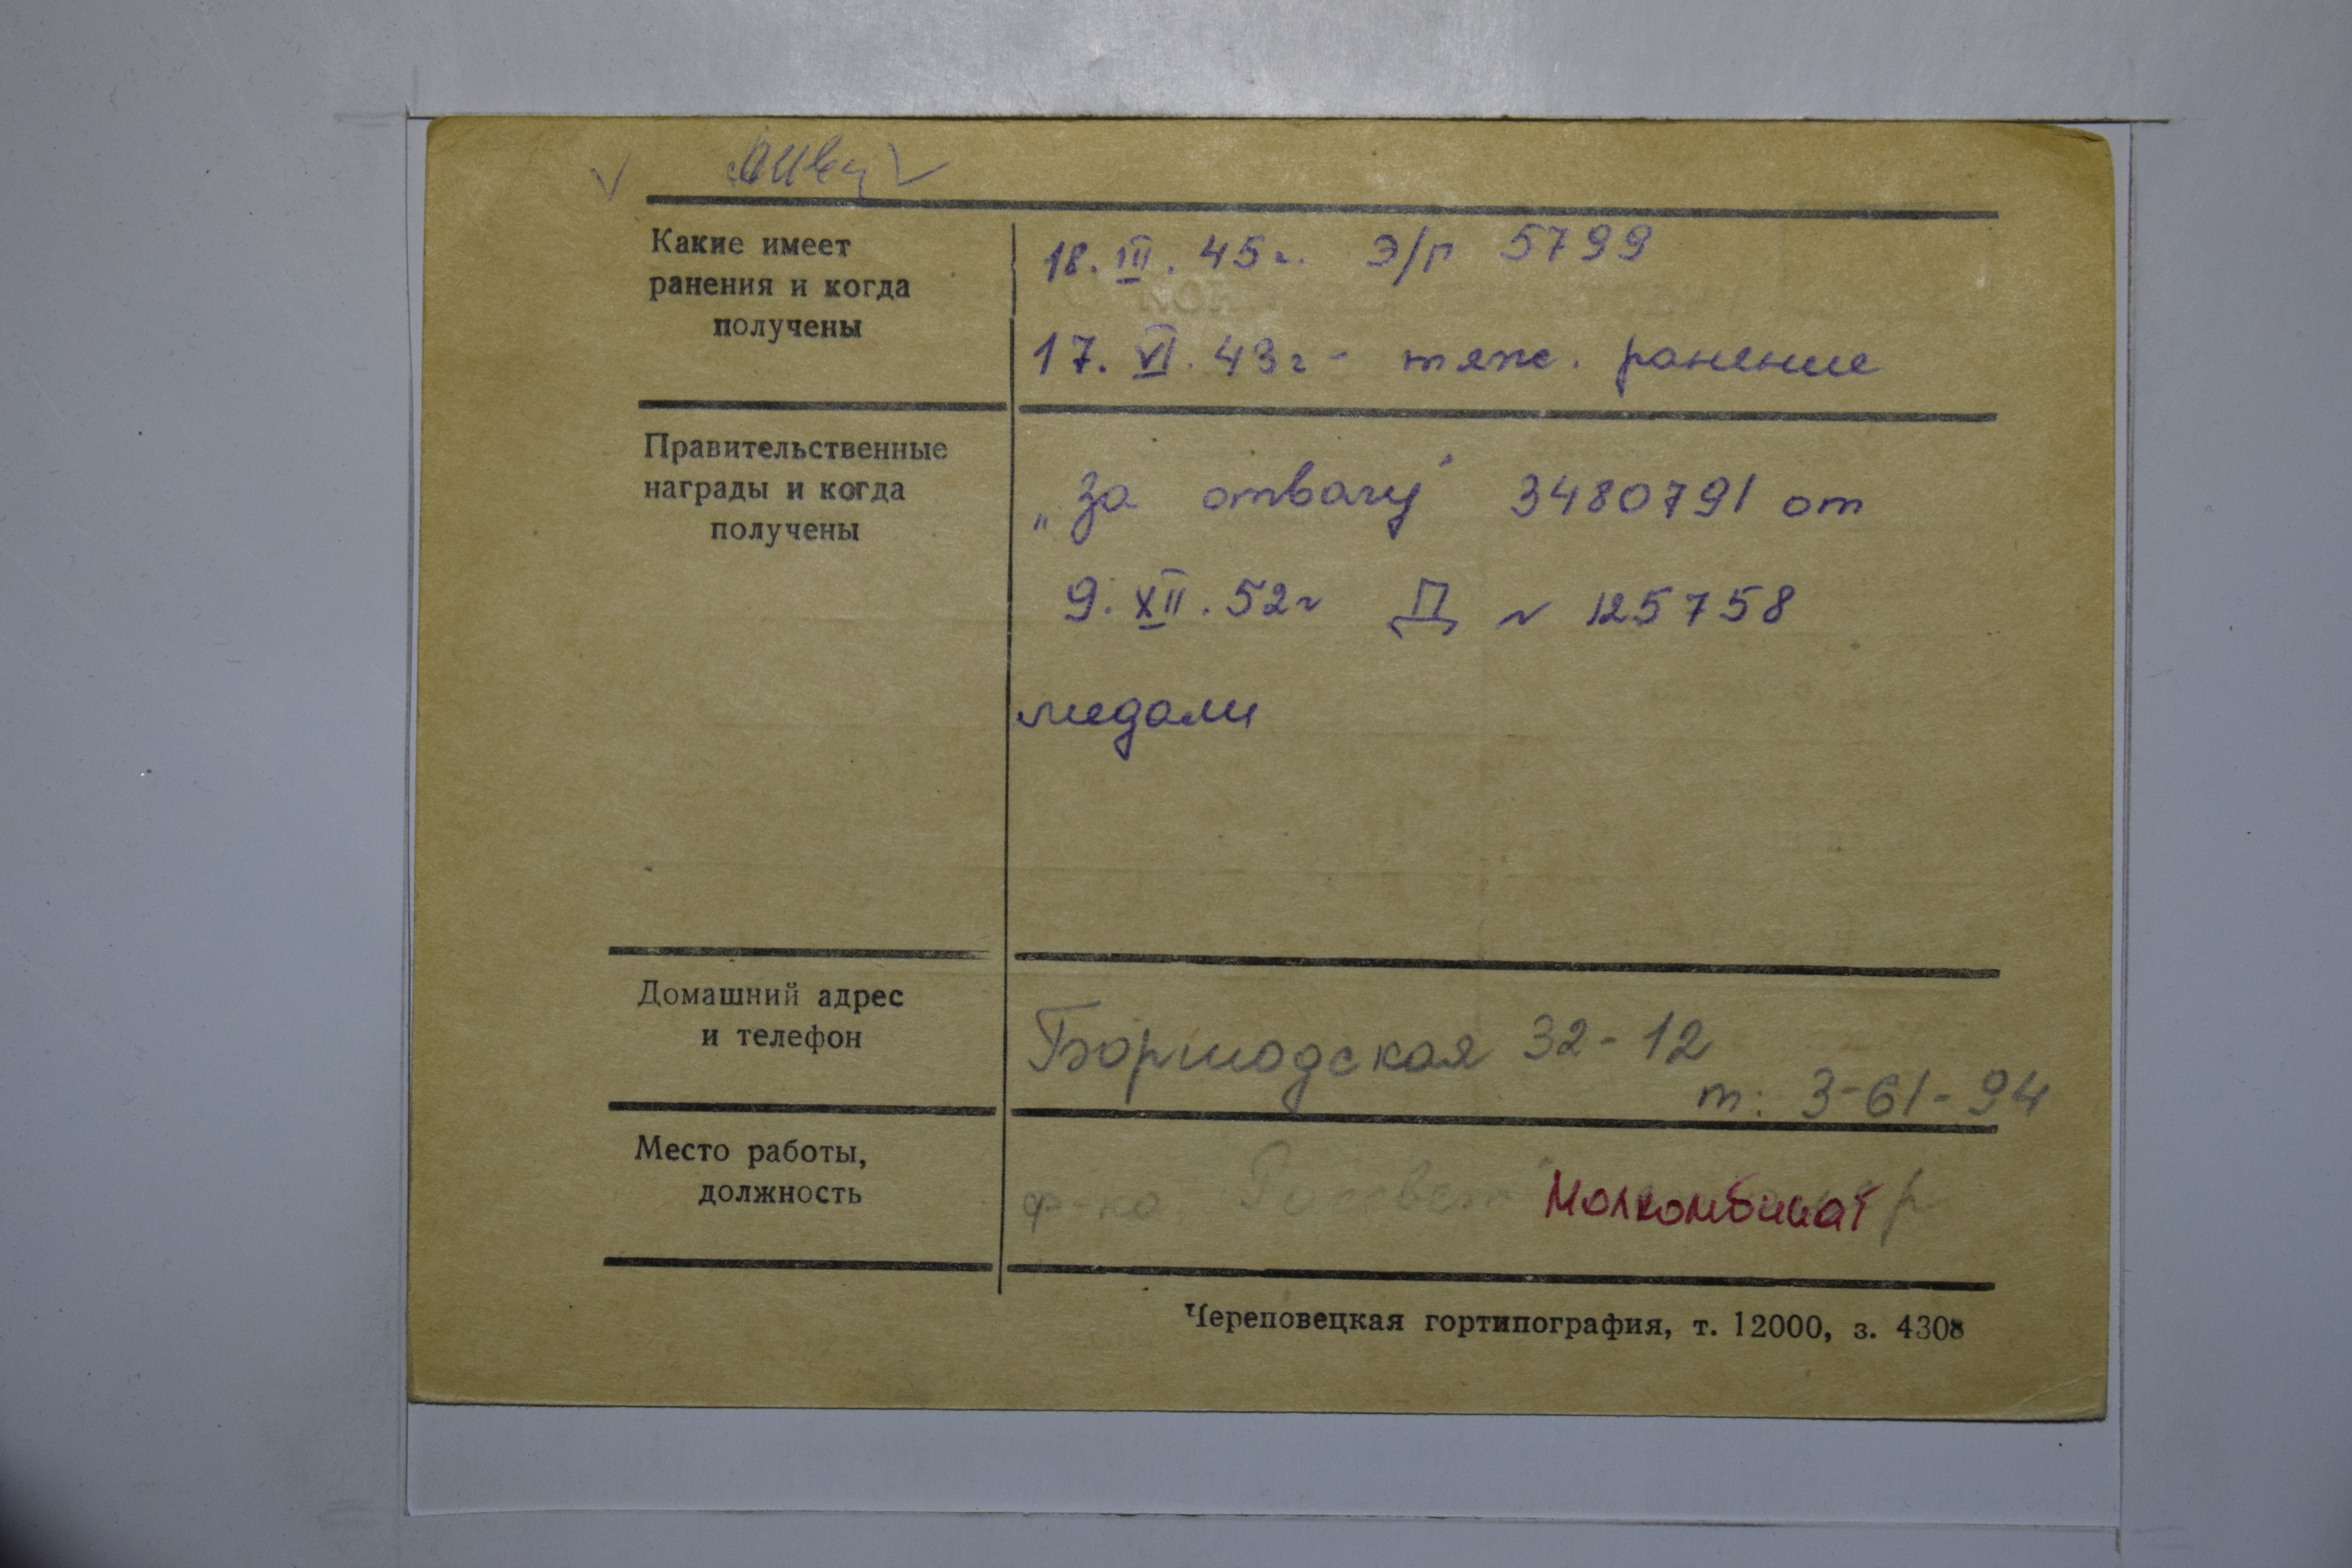 Какие имеет
ранения и когда
получены
18. III. 45г. Э/г 5799
17. VI. 43г - тяж. ранение
Правительственные
награды и когда
получены
„За отвагу" 3480791 от
9. XII. 52г Д № 125758
медали
Домашний адрес
и телефон
Боршодская 32-12
т: 3-61-94
Место работы,
должность
ф-ка "Рассвет" Молкомбинат
Череповецкая гортипография, т. 12000, з. 4308